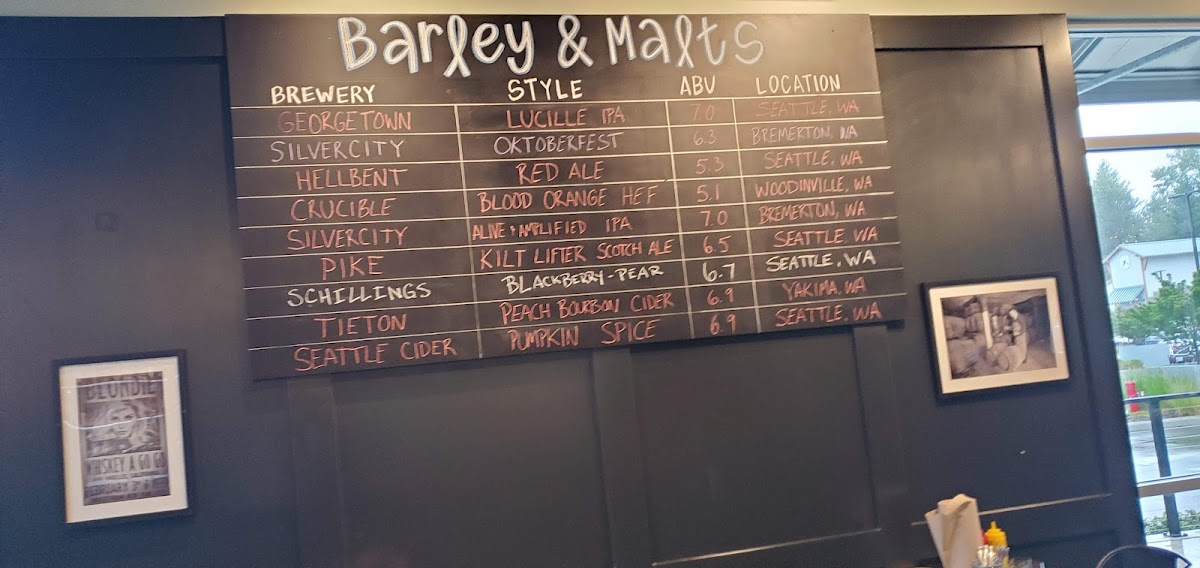 Barley & Malts
BREWERY STYLE ABV LOCATION
GEORGETOWN LUCILLE IPA 7.0 SEATTLE, WA
SILVERCITY OKTOBERFEST 6.3 BREMERTON, WA
HELLBENT RED ALE 5.3 SEATTLE, WA
CRUCIBLE BLOOD ORANGE HEF 5.1 WOODINVILLE, WA
SILVERCITY ALIVE & AMPLIFIED IPA 7.0 BREMERTON, WA
PIKE KILT LIFTER SCOTCH ALE 6.5 SEATTLE, WA
SCHILLINGS BLACKBERRY-PEAR 6.7 SEATTLE, WA
TIETON PEACH BOURBON CIDER 6.9 YAKIMA, WA
SEATTLE CIDER PUMPKIN SPICE 6.9 SEATTLE, WA
BLONDIE
WHISKEY A GO GO
FEBRUARY